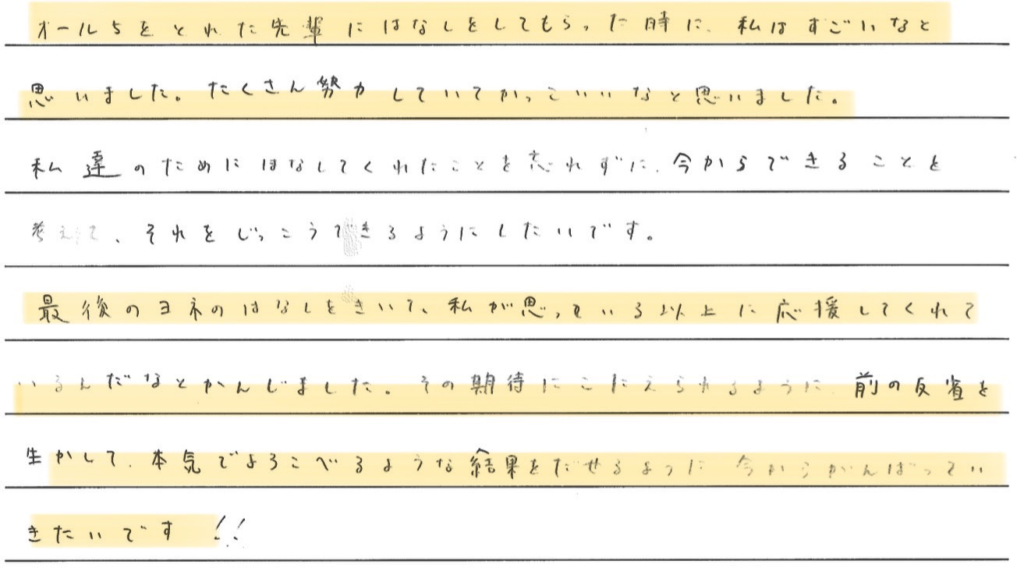 オール5をとれた先輩にはなしをしてもらった時に、私はすごいなと
思いました。たくさん努力していてかっこいいなと思いました。
私達のためにはなしてくれたことを忘れずに、今からできることを
考えて、それをじっこうできるようにしたいです。
最後のヨネのはなしをきいて、私が思っている以上に応援してくれて
いるんだなとかんじました。その期待にこたえられるように、前の反省を
生かして、本気でよろこべるような結果をだせるように今からがんばってい
きたいです!!